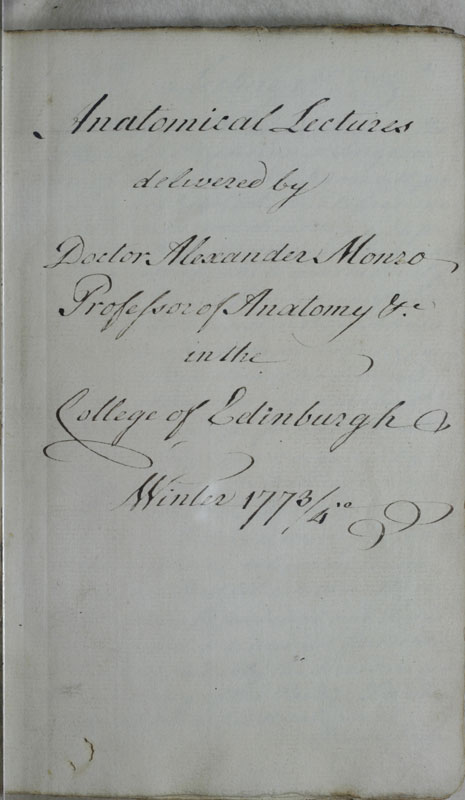 Anatomical Lectures
delivered by
Doctor Alexander Monro
Professor of Anatomy &c
in the
College of Edinburgh
Winter 1773/4